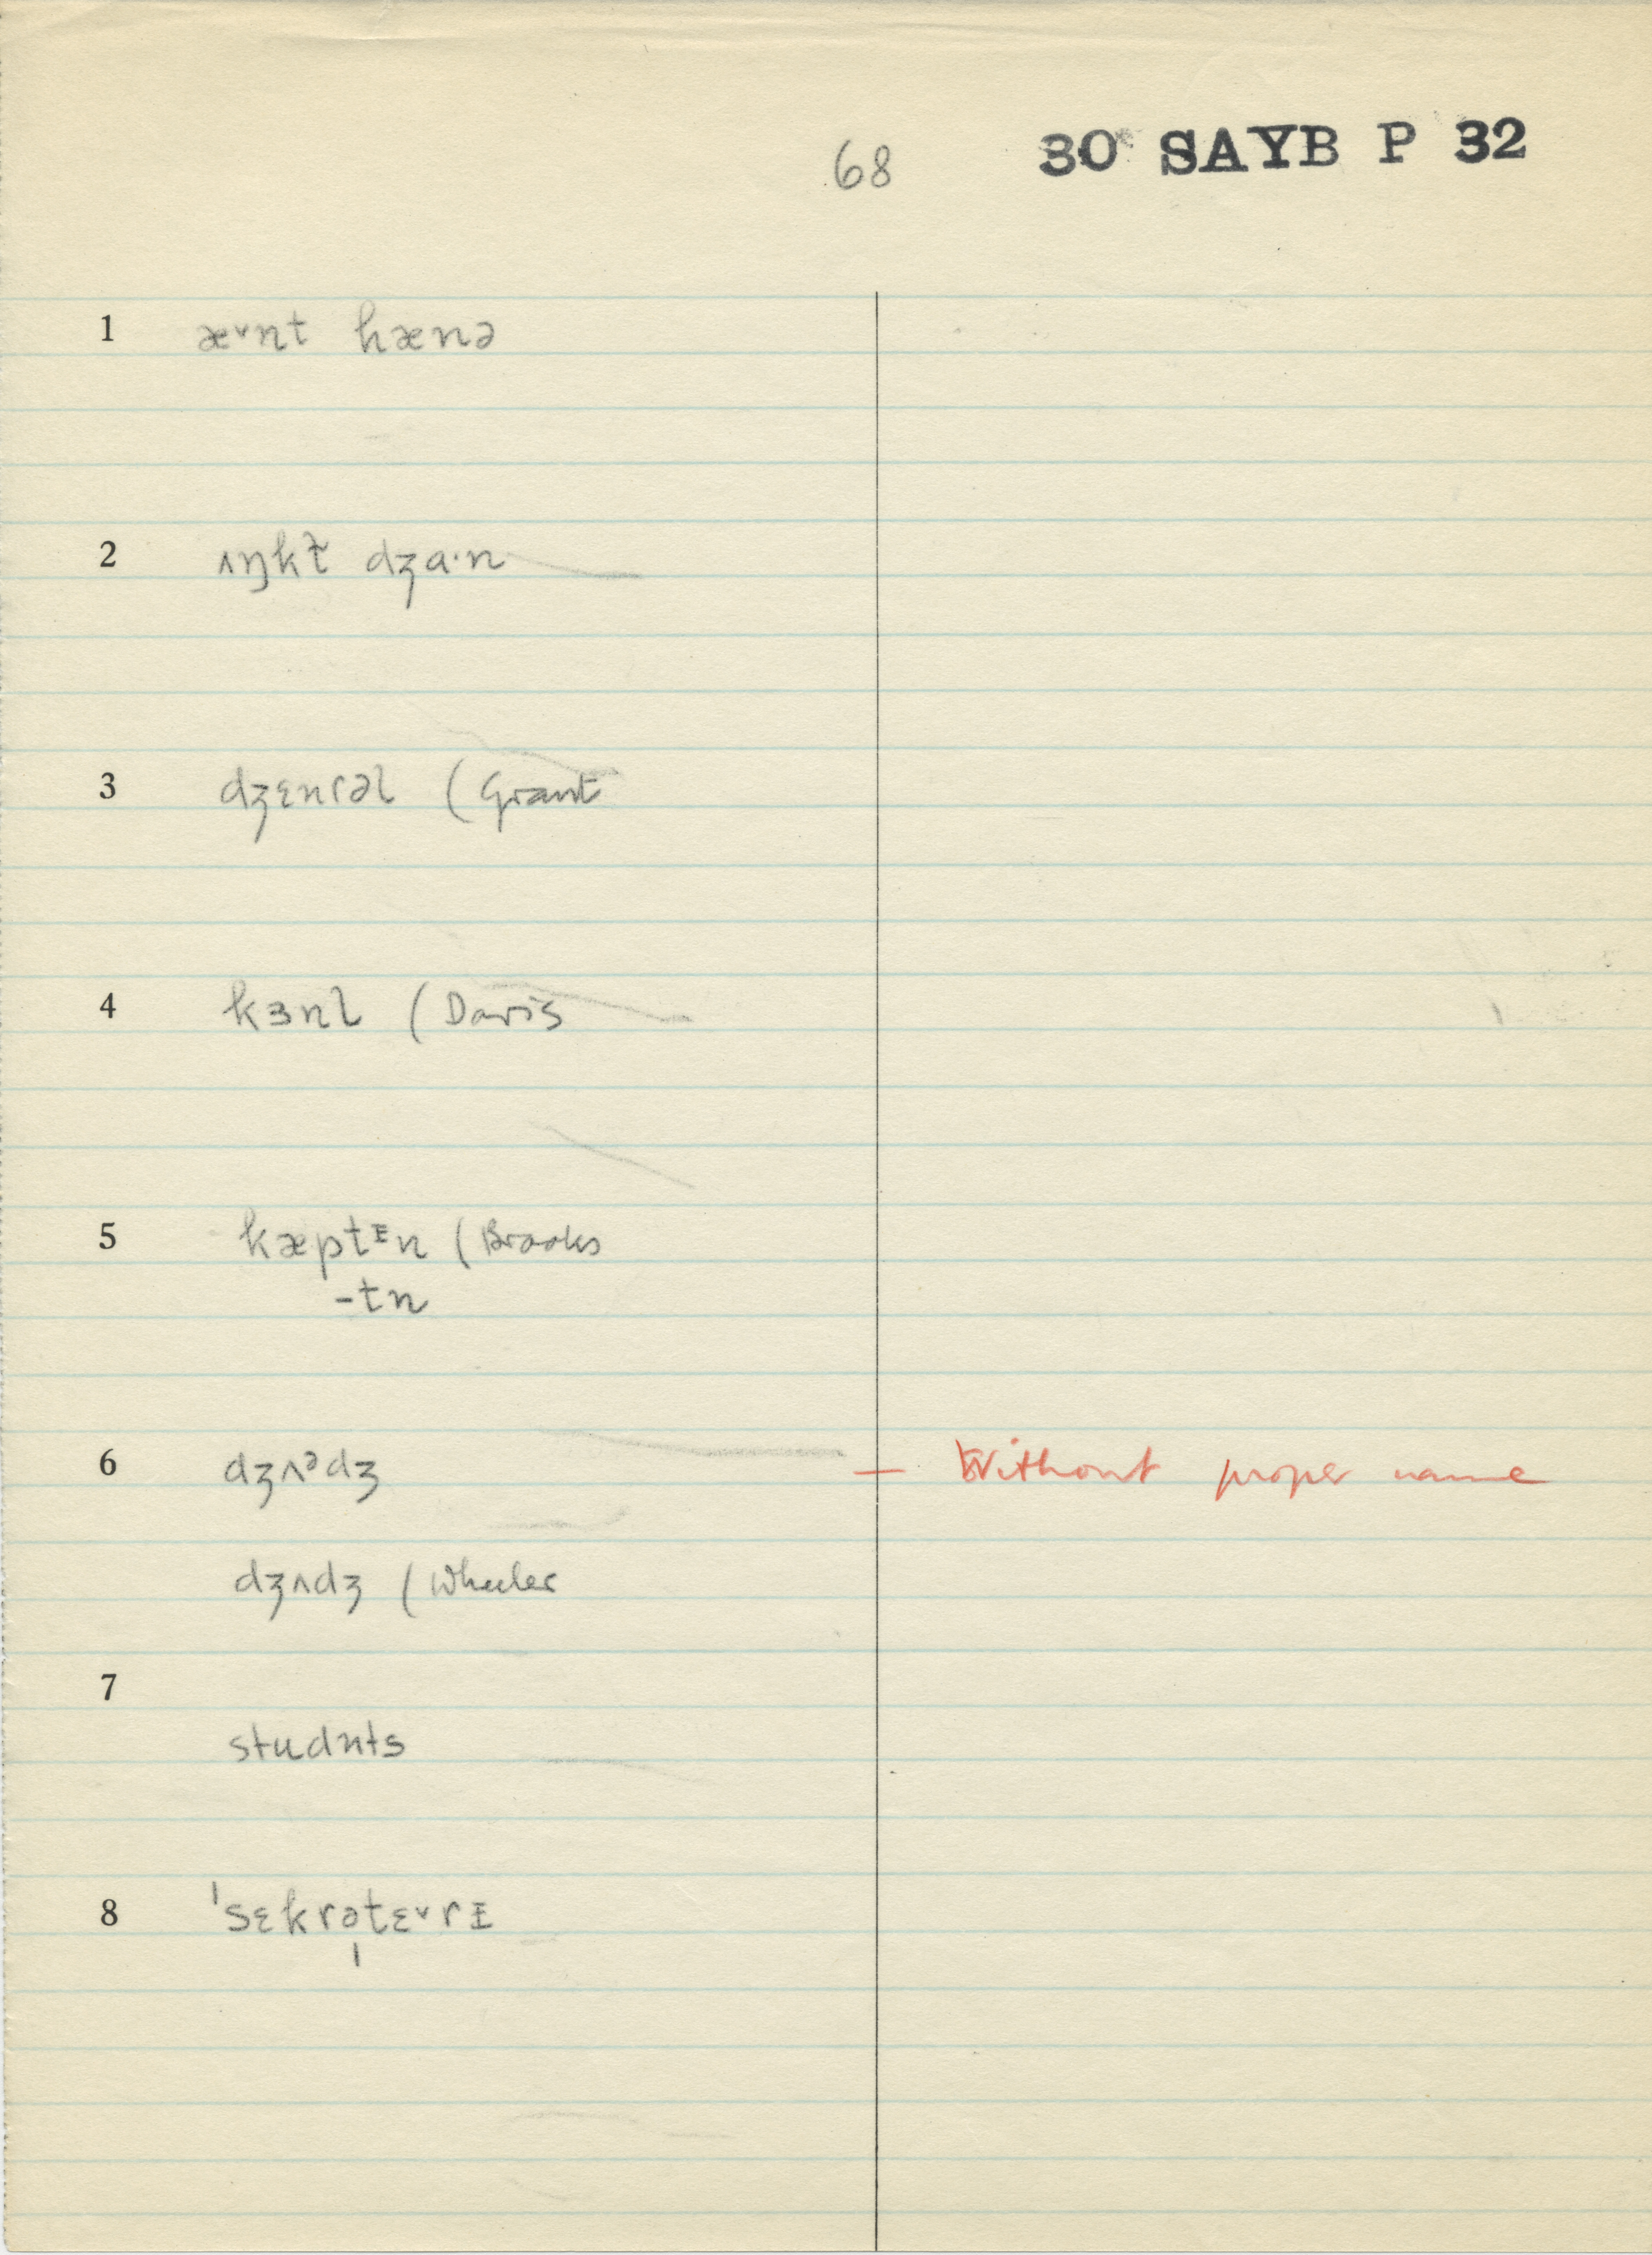 68 30 SAYB P 32
1 æ˅nt hænə
2 ʌŋkɫ̃ dʒɑ·n
3 dʒɛnrəl (Grant
4 kɜnl (Davis
5 kæptᵻn (Brooks
-tn
6 dʒʌᵊdʒ — Without proper name
dʒʌdʒ (Wheeler
7
studnts
8 ˈsɛkrəˌtɛ˅rᵻ